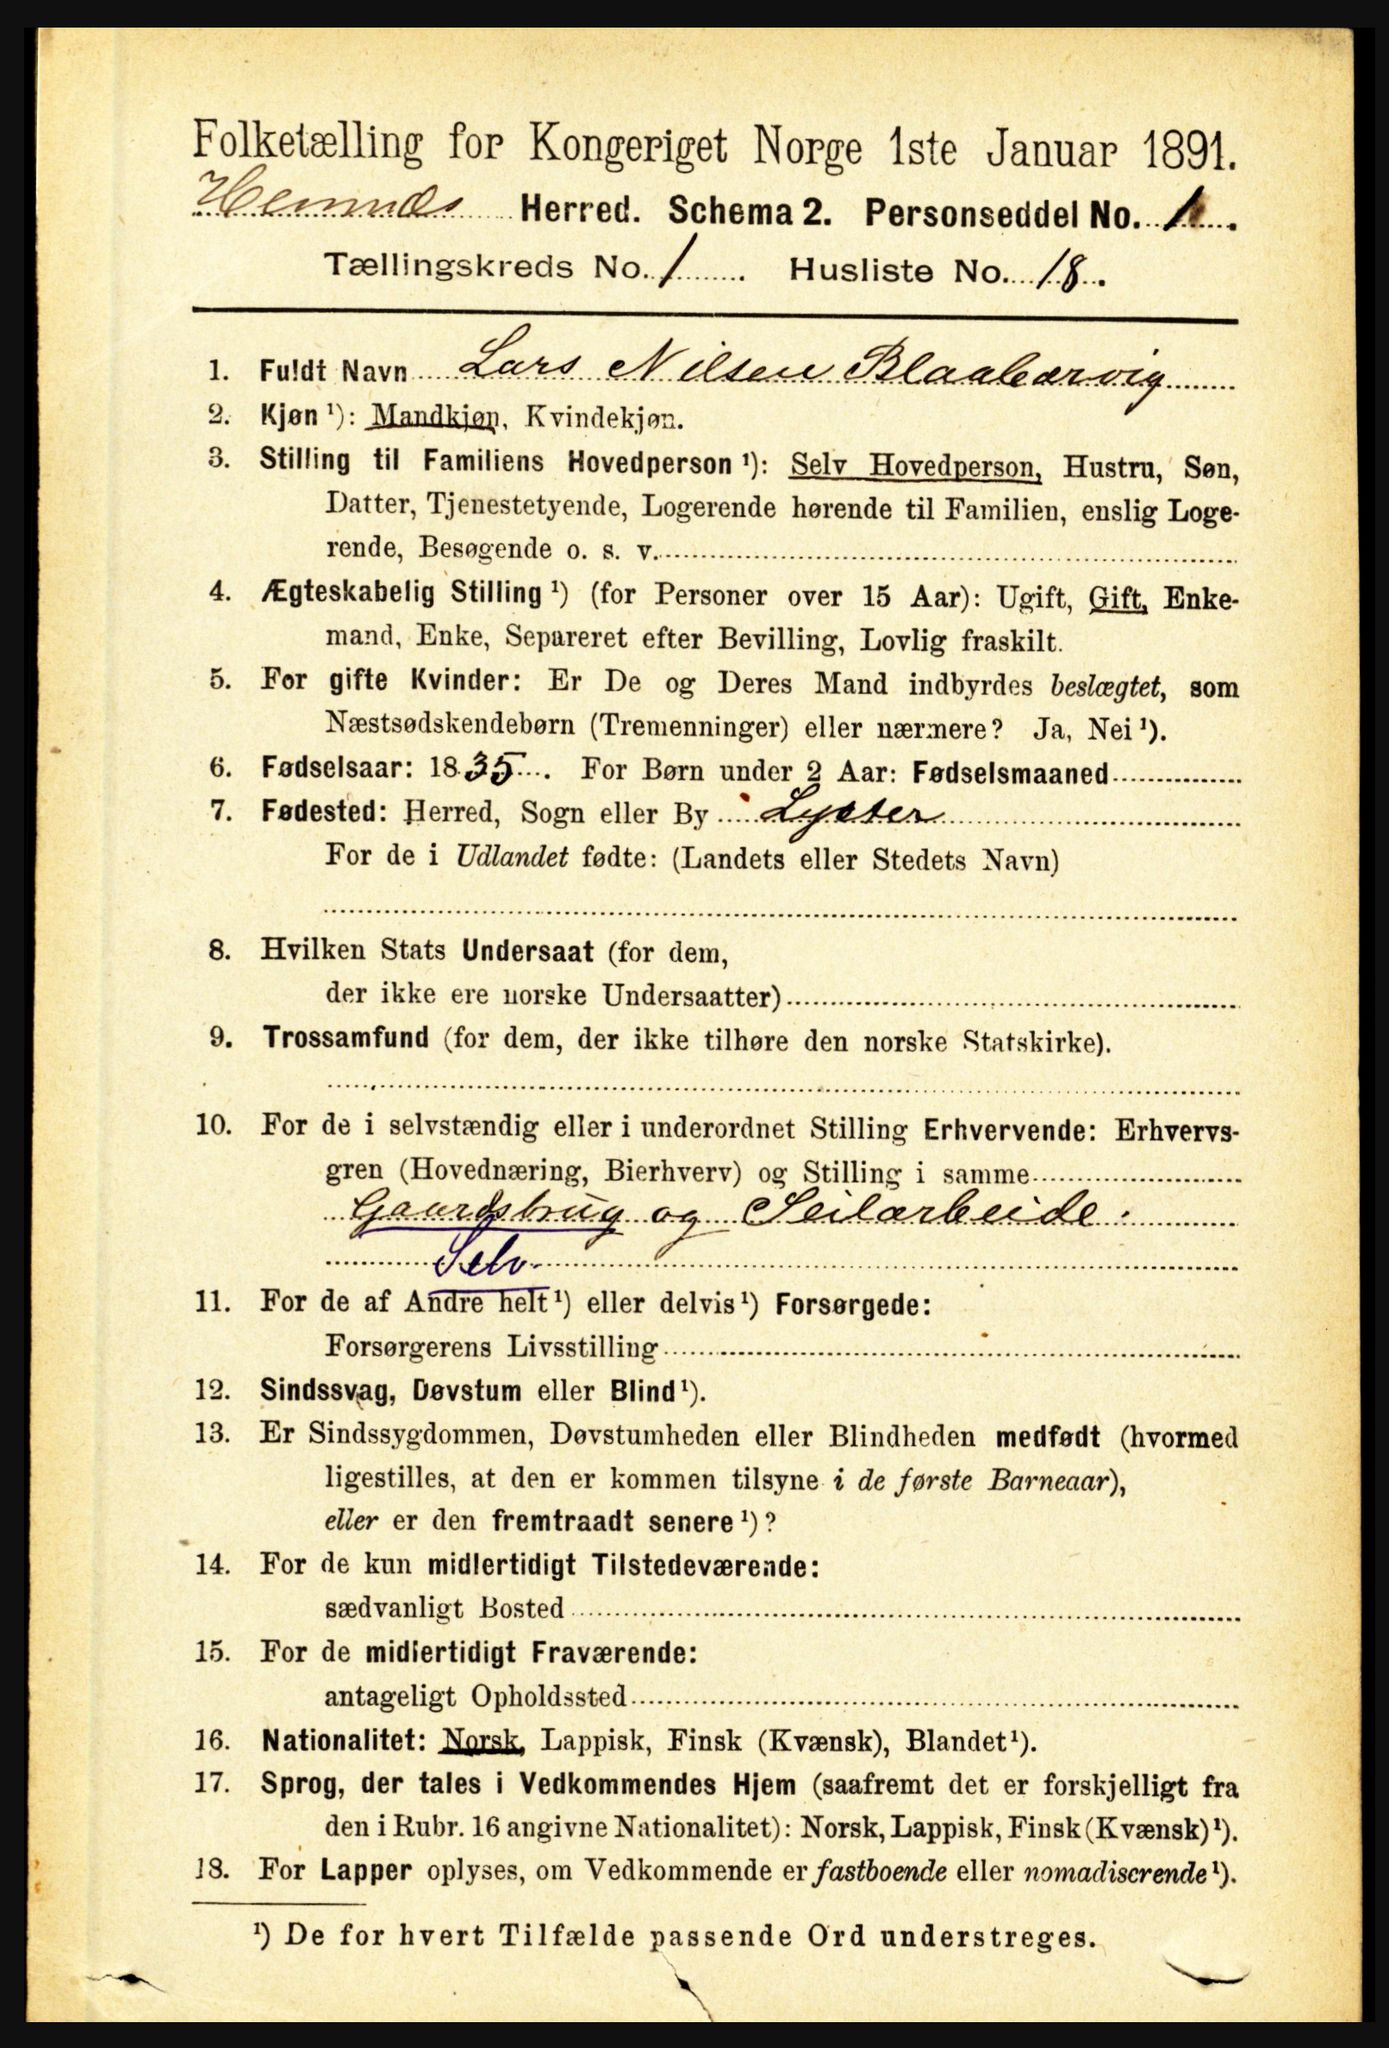 Folketælling for Kongeriget Norge 1ste Januar 1891.
Hemnæs Herred. Schema 2. Personseddel No. 1.
Tællingskreds No. 1. Husliste No. 18.
1. Fuldt Navn Lars Nilsen Blaabærvig
2. Kjøn ¹): Mandkjøn, Kvindekjøn.
3. Stilling til Familiens Hovedperson ¹): Selv Hovedperson, Hustru, Søn,
Datter, Tjenestetyende, Logerende hørende til Familien, enslig Loge-
rende, Besøgende o. s. v.
4. Ægteskabelig Stilling ¹) (for Personer over 15 Aar): Ugift, Gift, Enke-
mand, Enke, Separeret efter Bevilling, Lovlig fraskilt.
5. For gifte Kvinder: Er De og Deres Mand indbyrdes beslægtet, som
Næstsødskendebørn (Tremenninger) eller nærmere? Ja, Nei ¹).
6. Fødselsaar: 1835. For Børn under 2 Aar: Fødselsmaaned
7. Fødested: Herred, Sogn eller By Lyster
For de i Udlandet fødte: (Landets eller Stedets Navn)
8. Hvilken Stats Undersaat (for dem,
der ikke ere norske Undersaatter)
9. Trossamfund (for dem, der ikke tilhøre den norske Statskirke).
10. For de i selvstændig eller i underordnet Stilling Erhvervende: Erhvervs-
gren (Hovednæring, Bierhverv) og Stilling i samme
Gaardsbrug og Seilarbeide.
Selv.
11. For de af Andre helt ¹) eller delvis ¹) Forsørgede:
Forsørgerens Livsstilling
12. Sindssvag, Døvstum eller Blind ¹).
13. Er Sindssygdommen, Døvstumheden eller Blindheden medfødt (hvormed
ligestilles, at den er kommen tilsyne i de første Barneaar),
eller er den fremtraadt senere ¹)?
14. For de kun midlertidigt Tilstedeværende:
sædvanligt Bosted
15. For de midlertidigt Fraværende:
antageligt Opholdssted
16. Nationalitet: Norsk, Lappisk, Finsk (Kvænsk), Blandet ¹).
17. Sprog, der tales i Vedkommendes Hjem (saafremt det er forskjelligt fra
den i Rubr. 16 angivne Nationalitet): Norsk, Lappisk, Finsk (Kvænsk) ¹).
18. For Lapper oplyses, om Vedkommende er fastboende eller nomadiserende ¹).
¹) De for hvert Tilfælde passende Ord understreges.